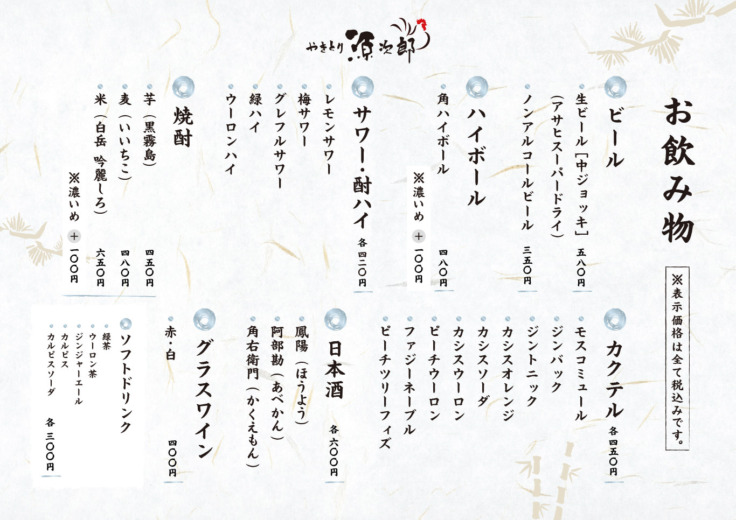 やきとり 源次郎
お飲み物
※表示価格は全て税込みです。
ビール
生ビール[中ジョッキ] 五八〇円
(アサヒスーパードライ)
ノンアルコールビール 三五〇円
ハイボール
角ハイボール 四八〇円
※濃いめ + 一〇〇円
サワー・酎ハイ 各四二〇円
レモンサワー
梅サワー
グレフルサワー
緑ハイ
ウーロンハイ
焼酎
芋(黒霧島) 四五〇円
麦(いいちこ) 四八〇円
米(白岳 吟麗しろ) 六五〇円
※濃いめ + 一〇〇円
カクテル 各四五〇円
モスコミュール
ジンバック
ジントニック
カシスオレンジ
カシスソーダ
カシスウーロン
ピーチウーロン
ファジーネーブル
ピーチツリーフィズ
日本酒 各六〇〇円
鳳陽(ほうよう)
阿部勘(あべかん)
角右衛門(かくえもん)
グラスワイン
赤・白 四〇〇円
ソフトドリンク
緑茶
ウーロン茶
ジンジャーエール
カルピス
カルピスソーダ
各 三〇〇円